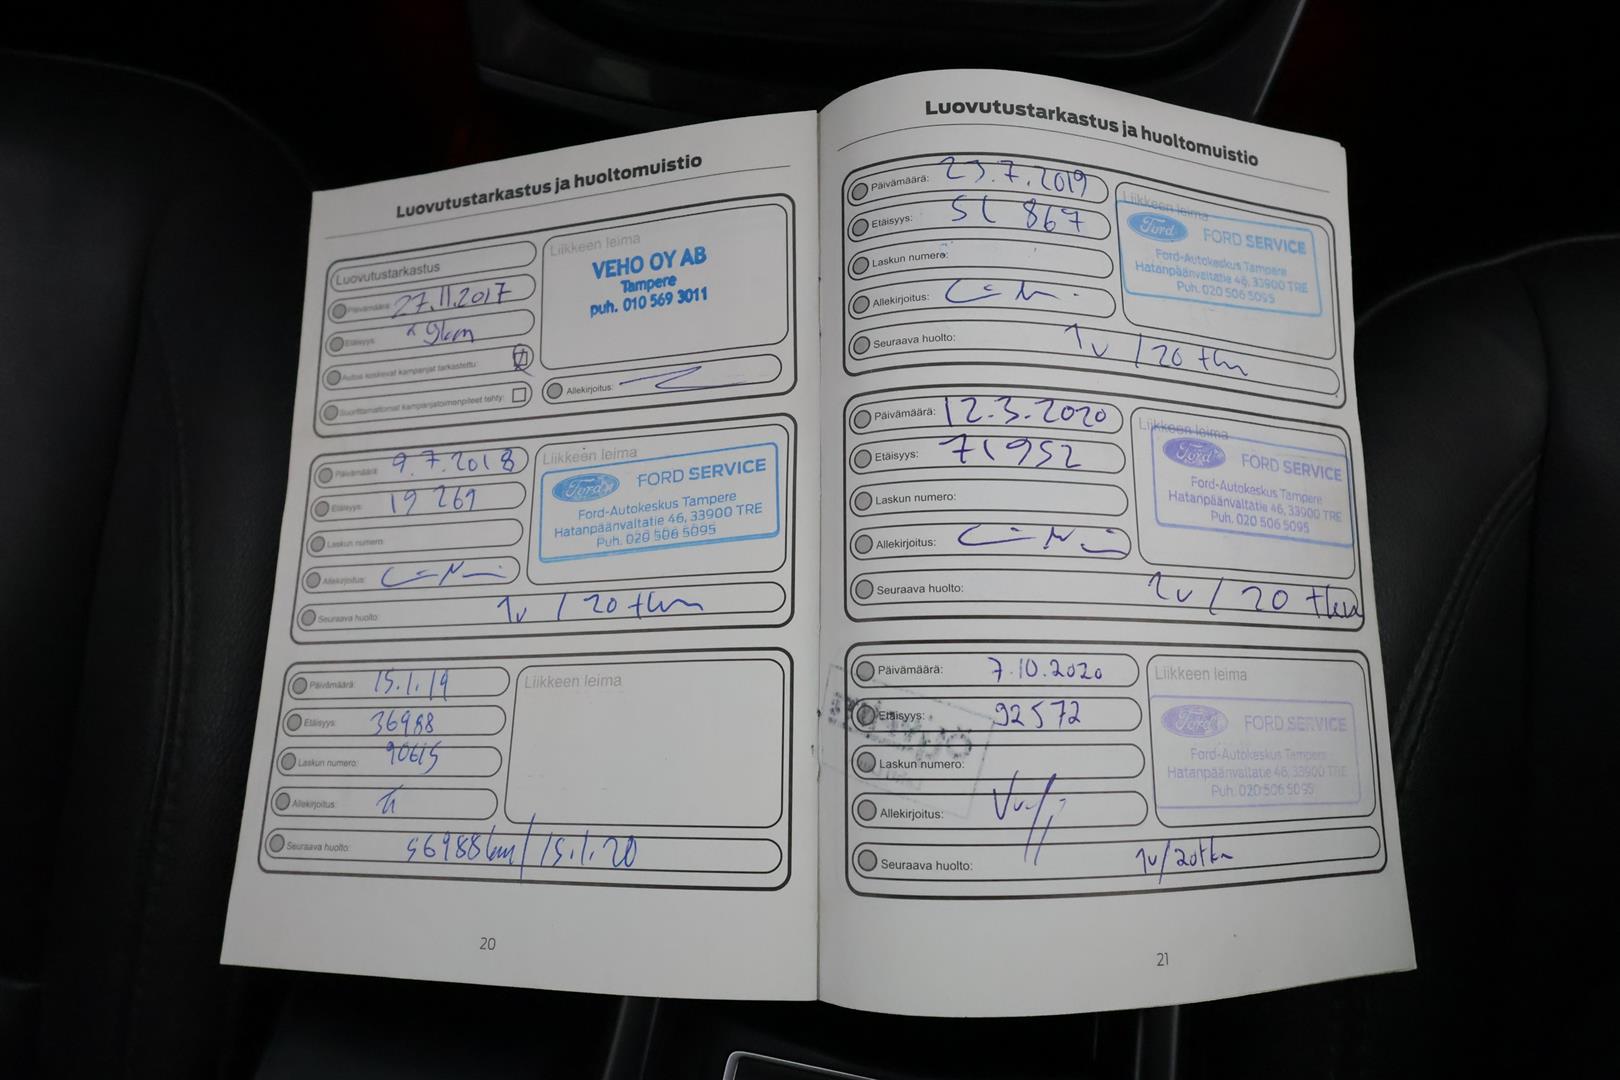 Luovutustarkastus ja huoltomuistio
Luovutustarkastus
Päivämäärä: 27.11.2017
Etäisyys: 9km
Autoa koskevat kampanjat tarkastettu:
Suorittamattomat kampanjatoimenpiteet tehty:
Liikkeen leima
VEHO OY AB
Tampere
puh. 010 569 3011
Allekirjoitus:
Päivämäärä: 9.7.2018
Etäisyys: 19 269
Laskun numero:
Allekirjoitus:
Seuraava huolto: 1v / 20 tkm
Liikkeen leima
Ford FORD SERVICE
Ford-Autokeskus Tampere
Hatanpäänvaltatie 46, 33900 TRE
Puh. 020 506 5095
Päivämäärä: 15.1.19
Etäisyys: 36988
Laskun numero: 90615
Allekirjoitus:
Seuraava huolto: 56988km / 15.1.20
Liikkeen leima
20
Luovutustarkastus ja huoltomuistio
Päivämäärä: 23.7.2019
Etäisyys: 51 867
Laskun numero:
Allekirjoitus:
Seuraava huolto: 1v / 20 tkm
Liikkeen leima
Ford FORD SERVICE
Ford-Autokeskus Tampere
Hatanpäänvaltatie 46, 33900 TRE
Puh. 020 506 5095
Päivämäärä: 12.3.2020
Etäisyys: 71952
Laskun numero:
Allekirjoitus:
Seuraava huolto: 1v / 20 tkm
Liikkeen leima
Ford FORD SERVICE
Ford-Autokeskus Tampere
Hatanpäänvaltatie 46, 33900 TRE
Puh. 020 506 5095
Päivämäärä: 7.10.2020
Etäisyys: 92572
Laskun numero:
Allekirjoitus:
Seuraava huolto: 1v/20tkm
Liikkeen leima
Ford FORD SERVICE
Ford-Autokeskus Tampere
Hatanpäänvaltatie 46, 33900 TRE
Puh. 020 506 5095
21